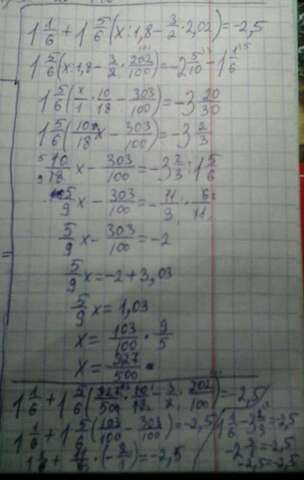 1 1/6 + 1 5/6 (x:1,8 - 3/2 · 2,02) = -2,5
1 5/6 (x:1,8 - 3/2 · 202/100) = -2 5/10 - 1 1/6
1 5/6 (x/1 · 10/18 - 303/100) = -3 20/30
1 5/6 (10/18 x - 303/100) = -3 2/3
10/18 x - 303/100 = -3 2/3 : 1 5/6
5/9 x - 303/100 = -11/3 · 6/11
5/9 x - 303/100 = -2
5/9 x = -2 + 3,03
5/9 x = 1,03
x = 103/100 · 9/5
x = 927/500
1 1/6 + 1 5/6 (927/500 · 10/18 - 3/2 · 202/100) = -2,5
1 1/6 + 1 5/6 (103/100 - 303/100) = -2,5